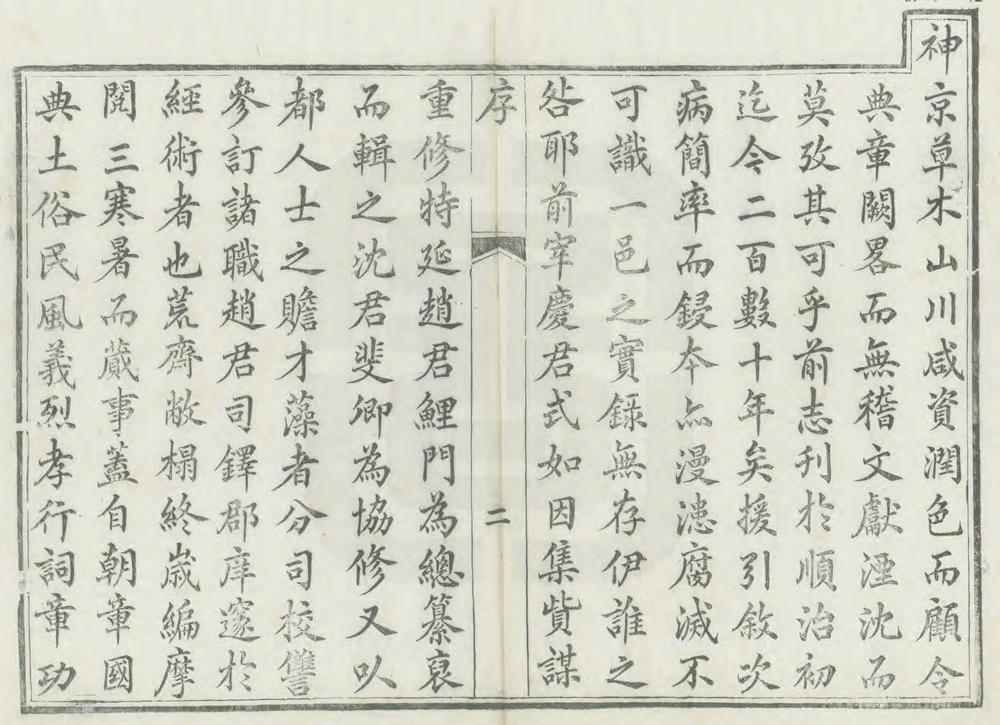 神京草木山川咸資潤色而顧令
典章闕畧而無稽文獻湮沈而
莫攷其可乎前志刊於順治初
迄今二百數十年矣援引敘次
病簡率而鋟本亦漫漶腐滅不
可識一邑之實錄無存伊誰之
咎耶前宰慶君式如因集貲謀
序
二
重修特延趙君鯉門為總纂裒
而輯之沈君斐卿為協修又以
都人士之贍才藻者分司校讐
參訂諸職趙君司鐸郡庠邃於
經術者也荒齋敝榻終歲編摩
閱三寒暑而蕆事蓋自朝章國
典土俗民風義烈孝行詞章功